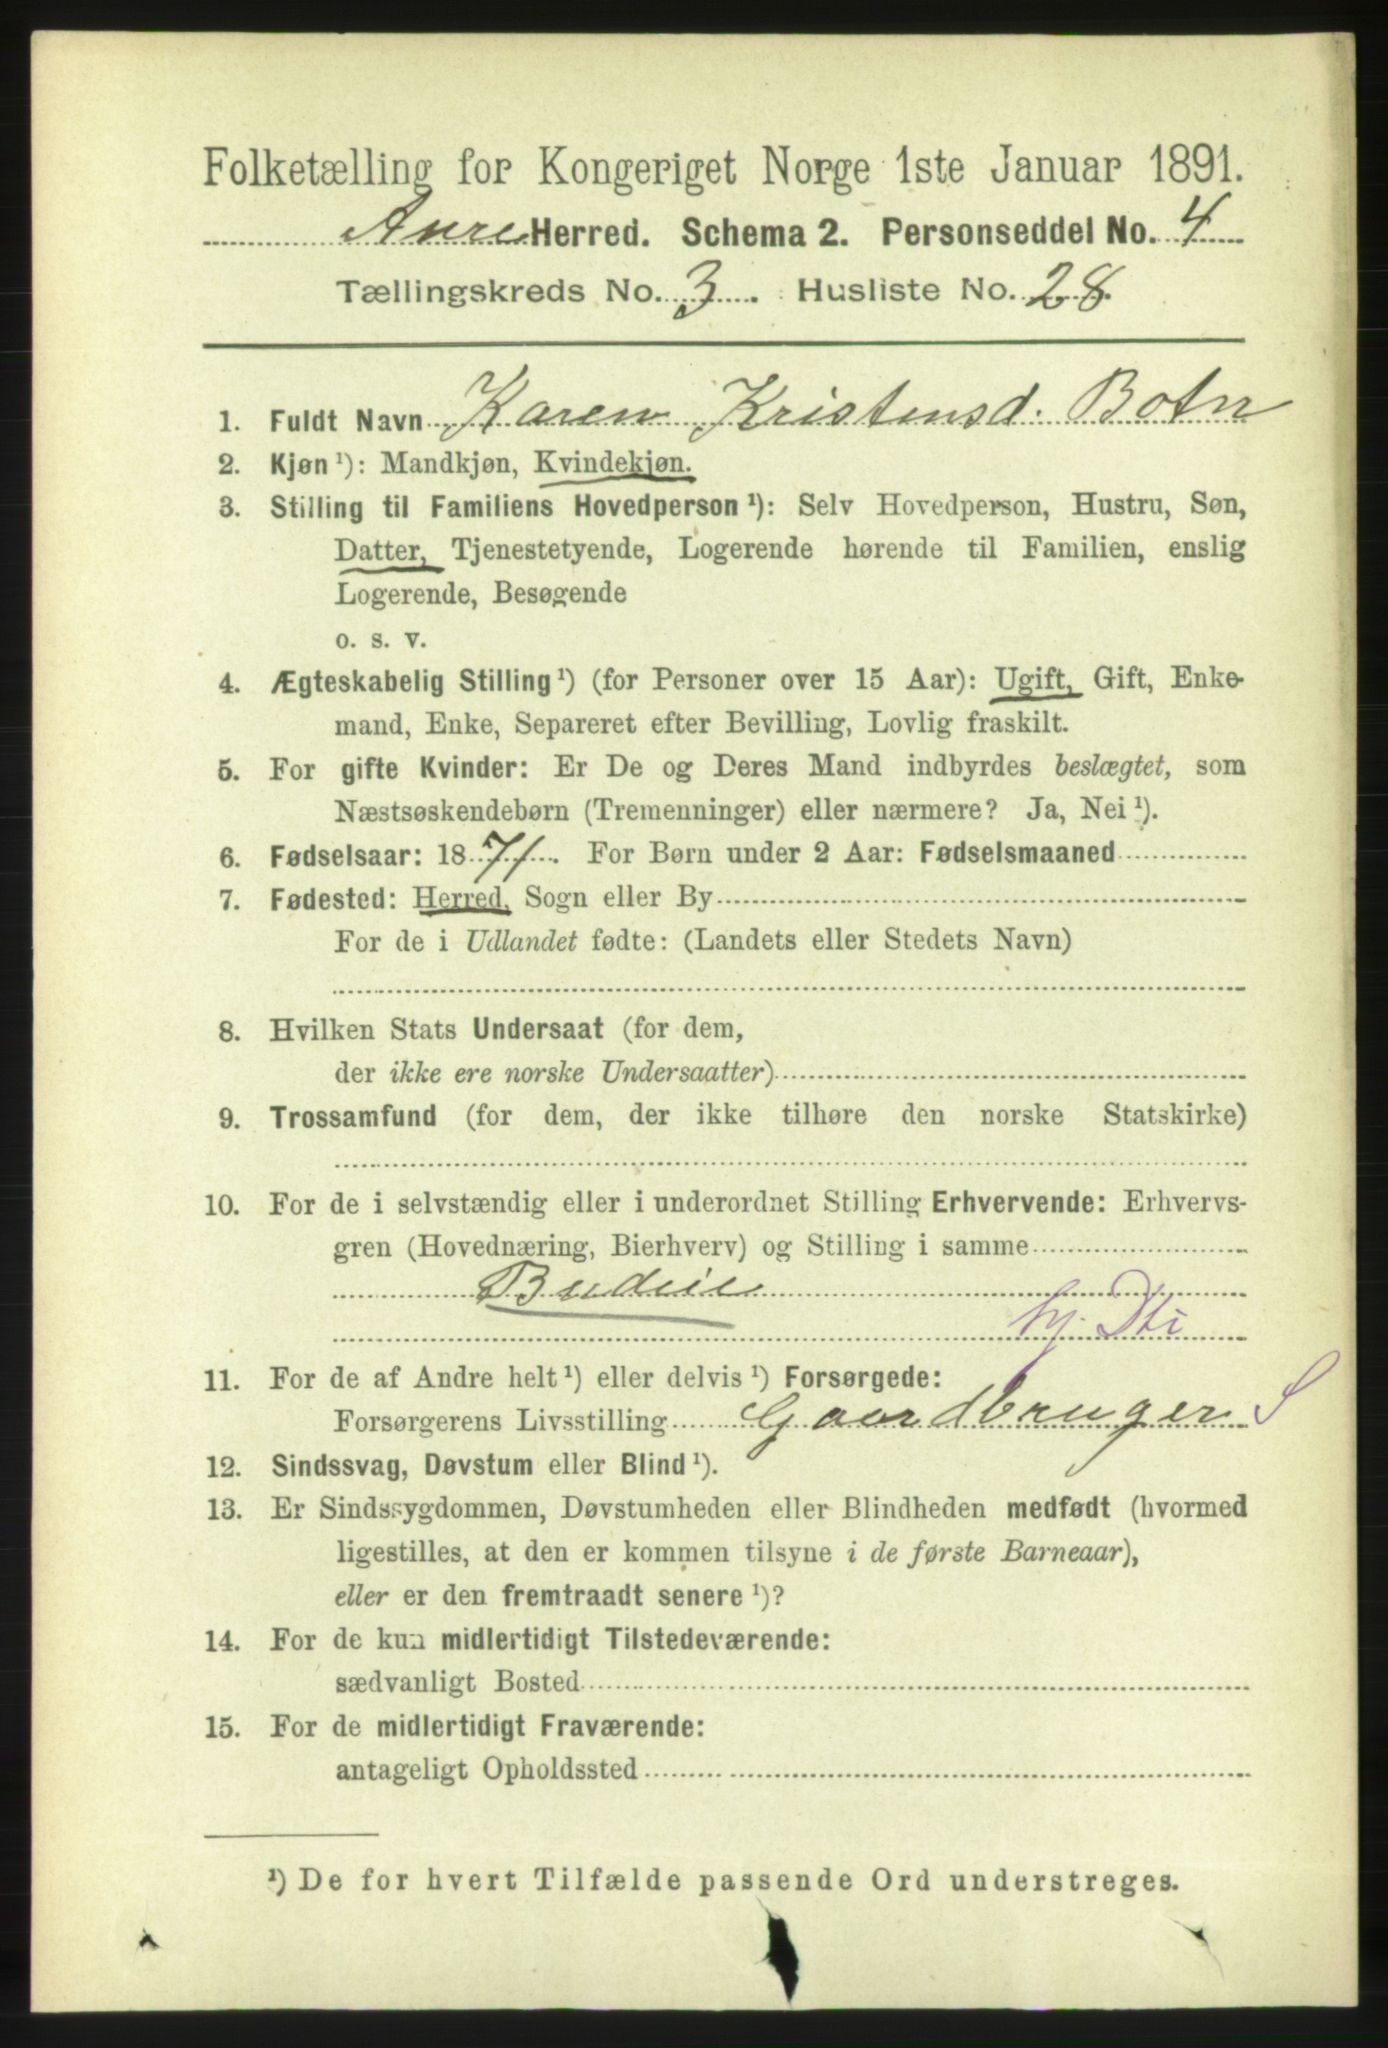 Folketælling for Kongeriget Norge 1ste Januar 1891.
Aure Herred. Schema 2. Personseddel No. 4
Tællingskreds No. 3. Husliste No. 28.
1. Fuldt Navn Karen Kristensd. Botn
2. Kjøn ¹): Mandkjøn, Kvindekjøn.
3. Stilling til Familiens Hovedperson ¹): Selv Hovedperson, Hustru, Søn,
Datter, Tjenestetyende, Logerende hørende til Familien, enslig
Logerende, Besøgende
o. s. v.
4. Ægteskabelig Stilling ¹) (for Personer over 15 Aar): Ugift, Gift, Enke-
mand, Enke, Separeret efter Bevilling, Lovlig fraskilt.
5. For gifte Kvinder: Er De og Deres Mand indbyrdes beslægtet, som
Næstsøskendebørn (Tremenninger) eller nærmere? Ja, Nei ¹).
6. Fødselsaar: 1871. For Børn under 2 Aar: Fødselsmaaned
7. Fødested: Herred, Sogn eller By
For de i Udlandet fødte: (Landets eller Stedets Navn)
8. Hvilken Stats Undersaat (for dem,
der ikke ere norske Undersaatter)
9. Trossamfund (for dem, der ikke tilhøre den norske Statskirke)
10. For de i selvstændig eller i underordnet Stilling Erhvervende: Erhvervs-
gren (Hovednæring, Bierhverv) og Stilling i samme
Budeie
hj. Dti
11. For de af Andre helt ¹) eller delvis ¹) Forsørgede:
Forsørgerens Livsstilling Gaardbruger S
12. Sindssvag, Døvstum eller Blind ¹).
13. Er Sindssygdommen, Døvstumheden eller Blindheden medfødt (hvormed
ligestilles, at den er kommen tilsyne i de første Barneaar),
eller er den fremtraadt senere ¹)?
14. For de kun midlertidigt Tilstedeværende:
sædvanligt Bosted
15. For de midlertidigt Fraværende:
antageligt Opholdssted
¹) De for hvert Tilfælde passende Ord understreges.